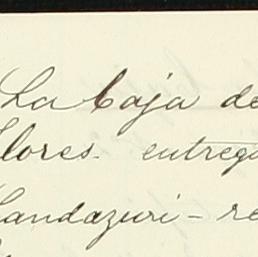 La Caja de
lores. entrega
Landazuri - re